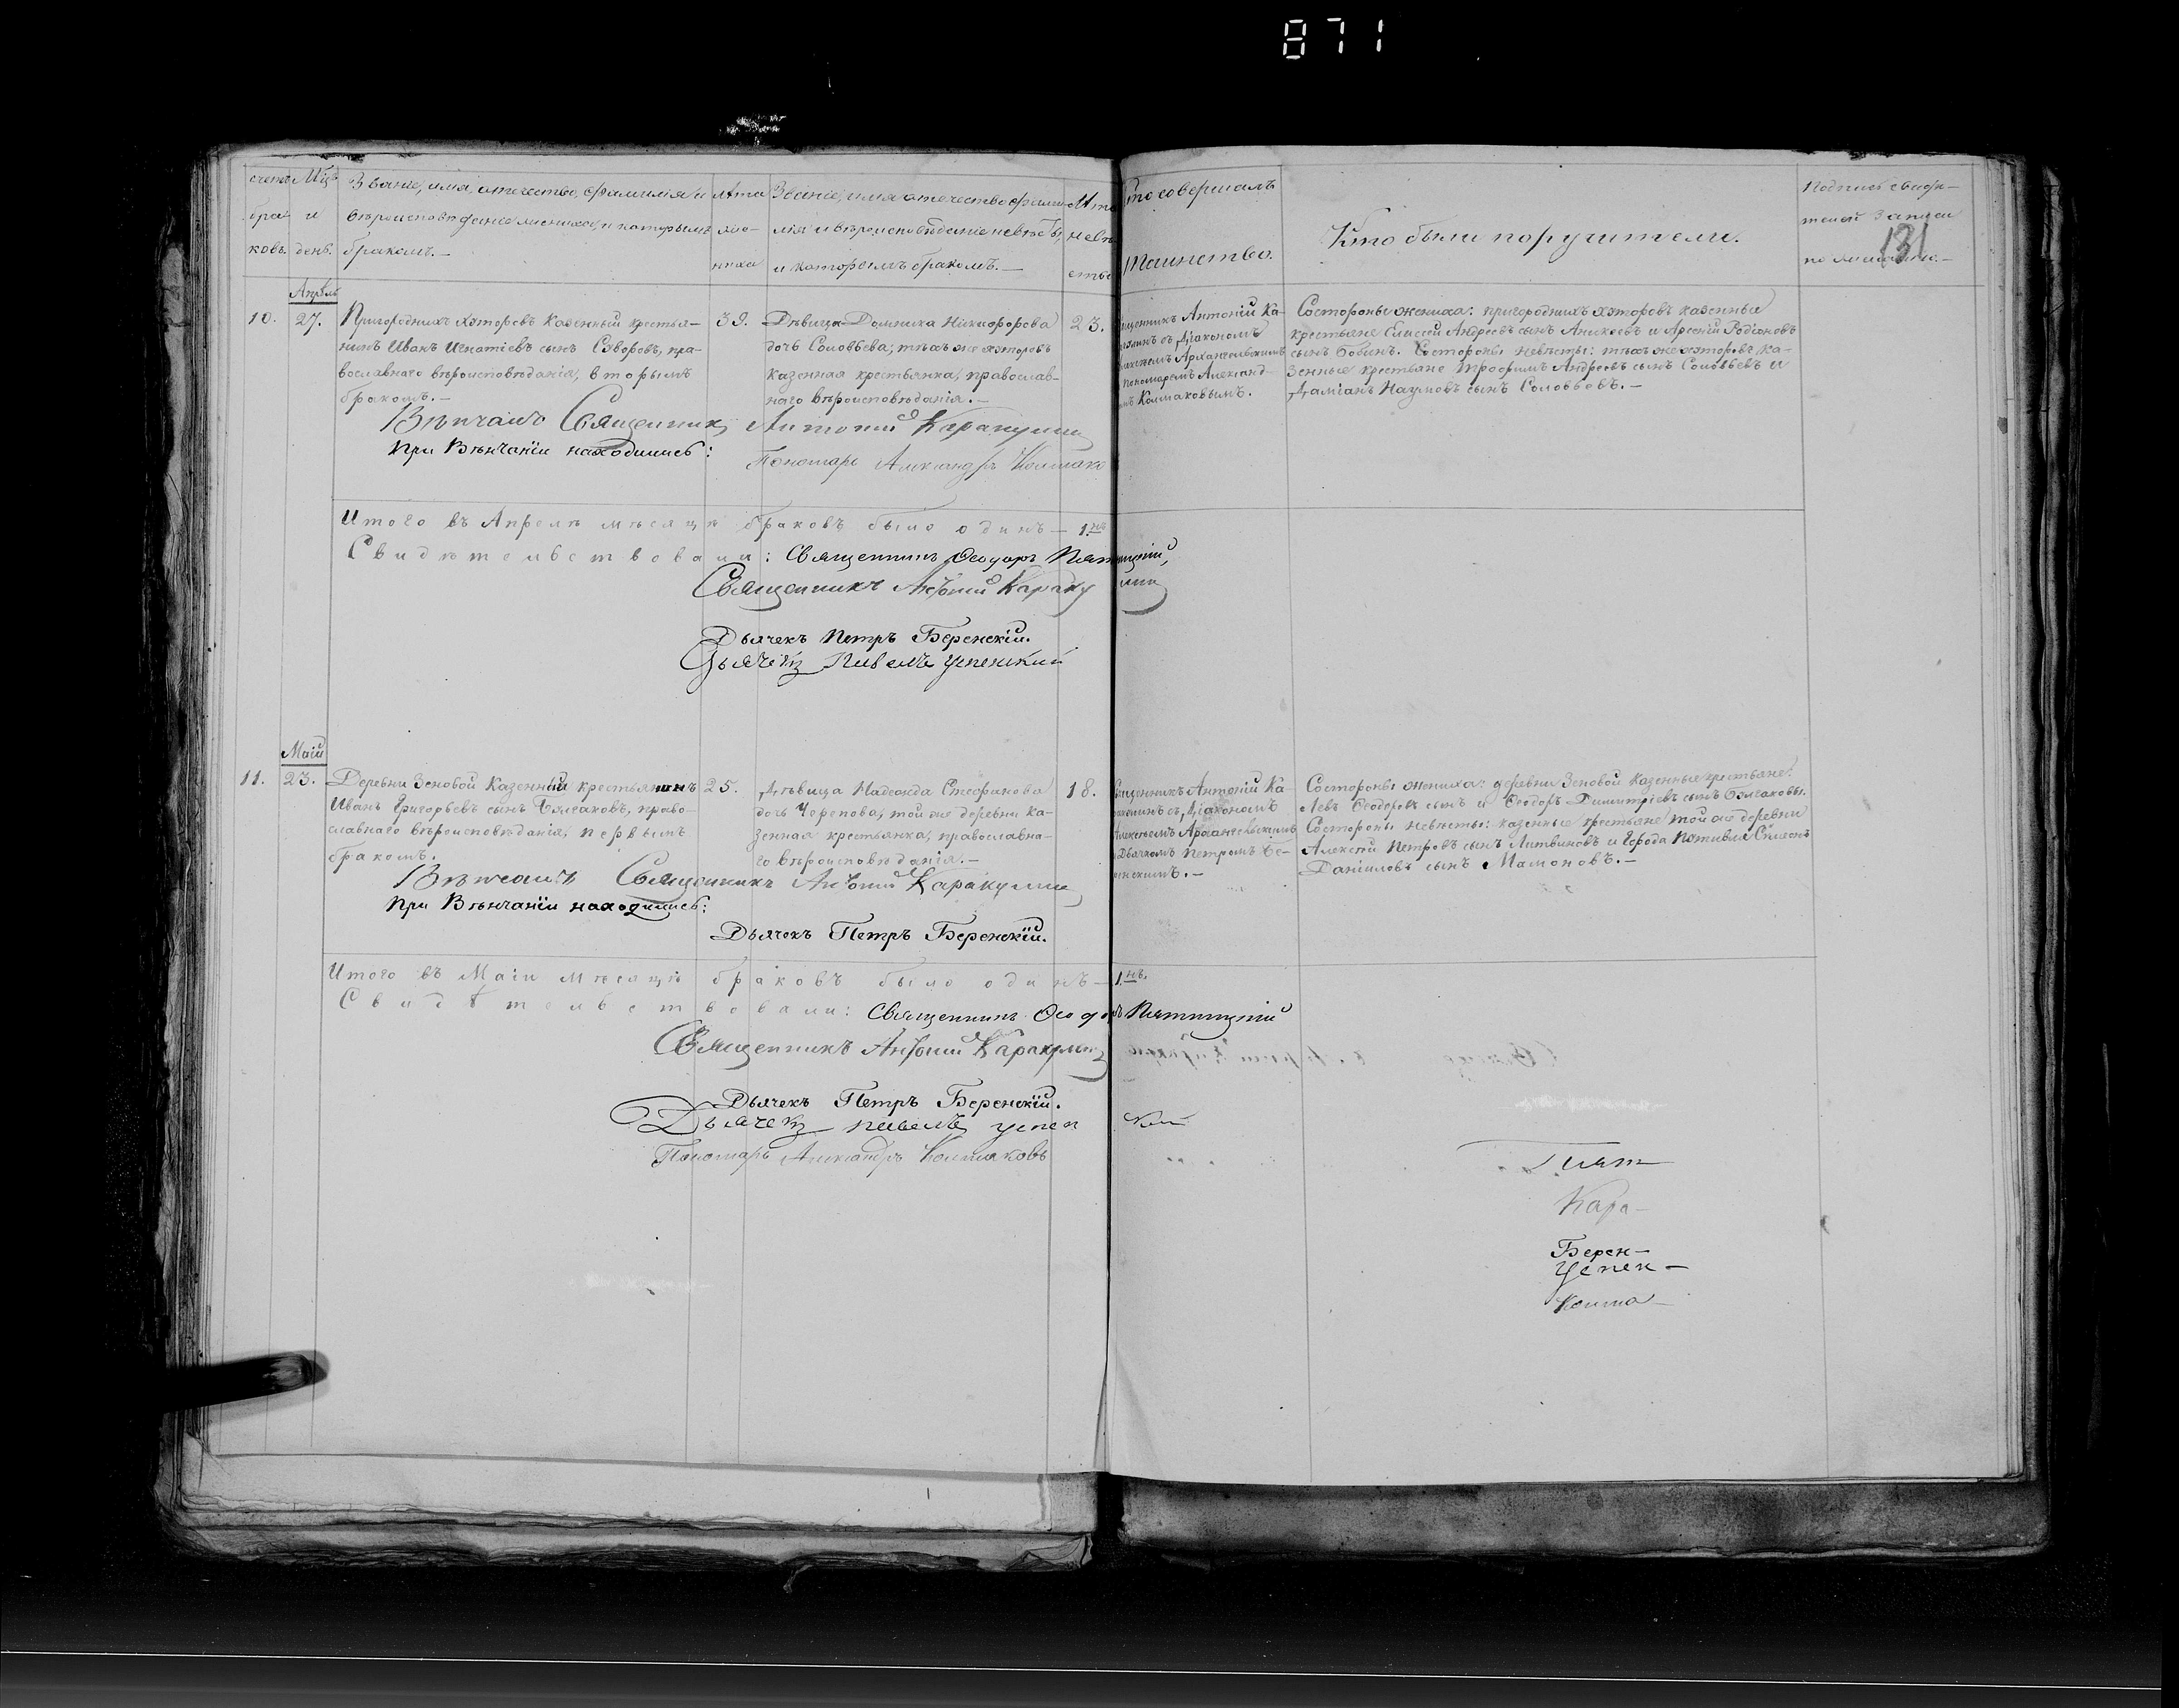 871
131
счетъ бра-ковъ.
Мцъ и день.
Званіе, имя, отечество, фамилія и
вѣроисповѣданіе жениха, и которымъ
бракомъ.—
Лѣта
же-
ниха
Званіе, имя отечество фами-
лія и вѣроисповѣданіе невѣсты,
и которымъ бракомъ.—
Лѣта
невѣ
сты
Кто совершалъ
Таинство.
Кто были поручители.
Подпись свидѣ-
телей записи
по желанію.—
Апрѣль
10.
27.
Пригородныхъ хуторовъ казенный крестья-
нинъ Иванъ Игнатіевъ сынъ
вославнаго вѣроисповѣданія, вторымъ
бракомъ.—
39.
Дѣвица Домника Никифорова
дочь Соловьева, тѣхъ же хуторовъ
казенная крестьянка, православ-
наго вѣроисповѣданія.—
23.
Антоній Ка-
съ Діакономъ
Архангельскимъ
Пономаремъ Александ-
Колмаковымъ.
Со стороны жениха: пригородныхъ хуторовъ казенные
крестьяне Елисей Андреевъ сынъ Аникеевъ и Арсеній Родіоновъ
сынъ Бобинъ. Со стороны невѣсты: тѣхъ же хуторовъ ка-
зенные крестьяне Трофимъ Андреевъ сынъ Соловьевъ и
Даміанъ Наумовъ сынъ Соловьовъ.—
Вѣнчалъ Священникъ Антоній Каракулинъ
При Вѣнчаніи находились:
Пономарь Александръ Колмако
Итого въ Апрѣлѣ мѣсяцѣ браковъ было одинъ — 1.нъ
Свидѣтельствовали: Священникъ Ѳеодоръ Пятницкій,
Священникъ Антоній Каракулинъ
Дьячекъ Петръ Беренскій.
Дьячекъ Павелъ Успенский
Маій
11.
23.
Деревни Зеновой казенный крестьянинъ
Иванъ Григорьевъ сынъ право-
славнаго вѣроисповѣданія, первымъ
бракомъ.
25.
Дѣвица Надежда Стефанова
дочь Черепова, той же деревни ка-
зенная крестьянка, православна-
го вѣроисповѣданія.—
18.
Священникъ Антоній Ка-
съ Діакономъ
Алексѣемъ Архангельскимъ
Дьячкомъ Петромъ Бе-
ренскимъ.—
Со стороны жениха: деревни Зеновой казенные крестьяне:
Левъ Ѳеодоровъ сынъ и Ѳеодоръ Димитріевъ сынъ
Со стороны невѣсты: казенные крестьяне той же деревни
Алексѣй Петровъ сынъ Литвиновъ и города Путивля Симеонъ
Даніиловъ сынъ Мамоновъ.—
Вѣнчалъ Священникъ Антоній Каракулинъ
При Вѣнчаніи находились:
Дьячекъ Петръ Беренскій.
Итого въ Маіи мѣсяцѣ браковъ было одинъ — 1.нъ.
Свидѣтельствовали: Священникъ Ѳеодоръ Пятницкій
Священникъ Антоній Каракулинъ
Дьячекъ Петръ Беренскій.
Дьячекъ Павелъ Успенкій
Пономарь Александръ Колмаковъ
Пят—
Кара—
Берен—
Успен—
Колма—